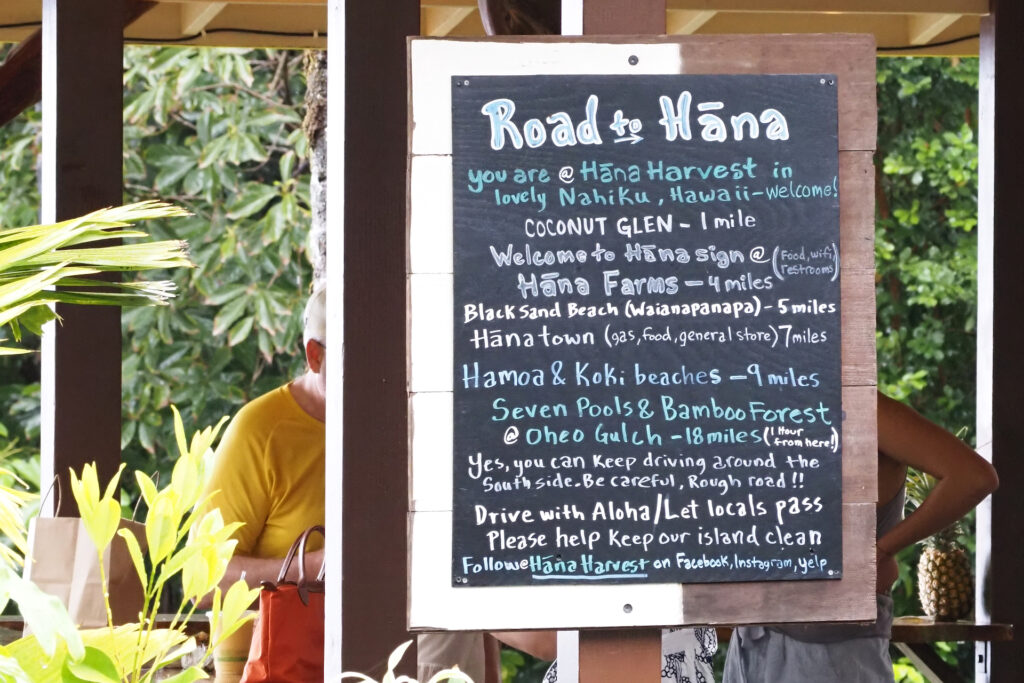 Road to Hāna
you are @ Hāna Harvest in
lovely Nahiku, Hawaii - Welcome!
COCONUT GLEN - 1 mile
Welcome to Hāna sign @ (Food, wifi,
restrooms)
Hāna Farms - 4 miles
Black Sand Beach (Waianapanapa) - 5 miles
Hāna town (gas, food, general store) 7 miles
Hamoa & Koki beaches - 9 miles
Seven Pools & Bamboo Forest
@ Oheo Gulch - 18 miles (1 Hour
from here!)
Yes, you can keep driving around the
South side. Be careful, Rough road!!
Drive with Aloha/Let locals pass
Please help keep our island clean
Follow@Hāna Harvest on Facebook, Instagram, yelp